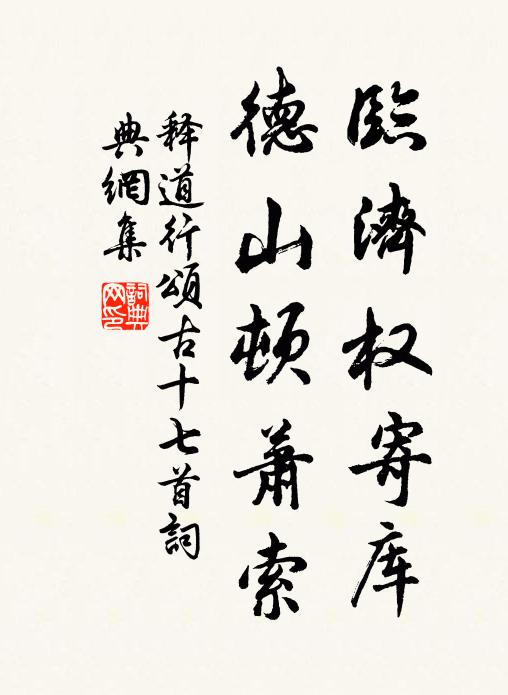 臨濟权寄库
德山頓蕭索
释道行頌古十七首詞
典網集
詞典網印